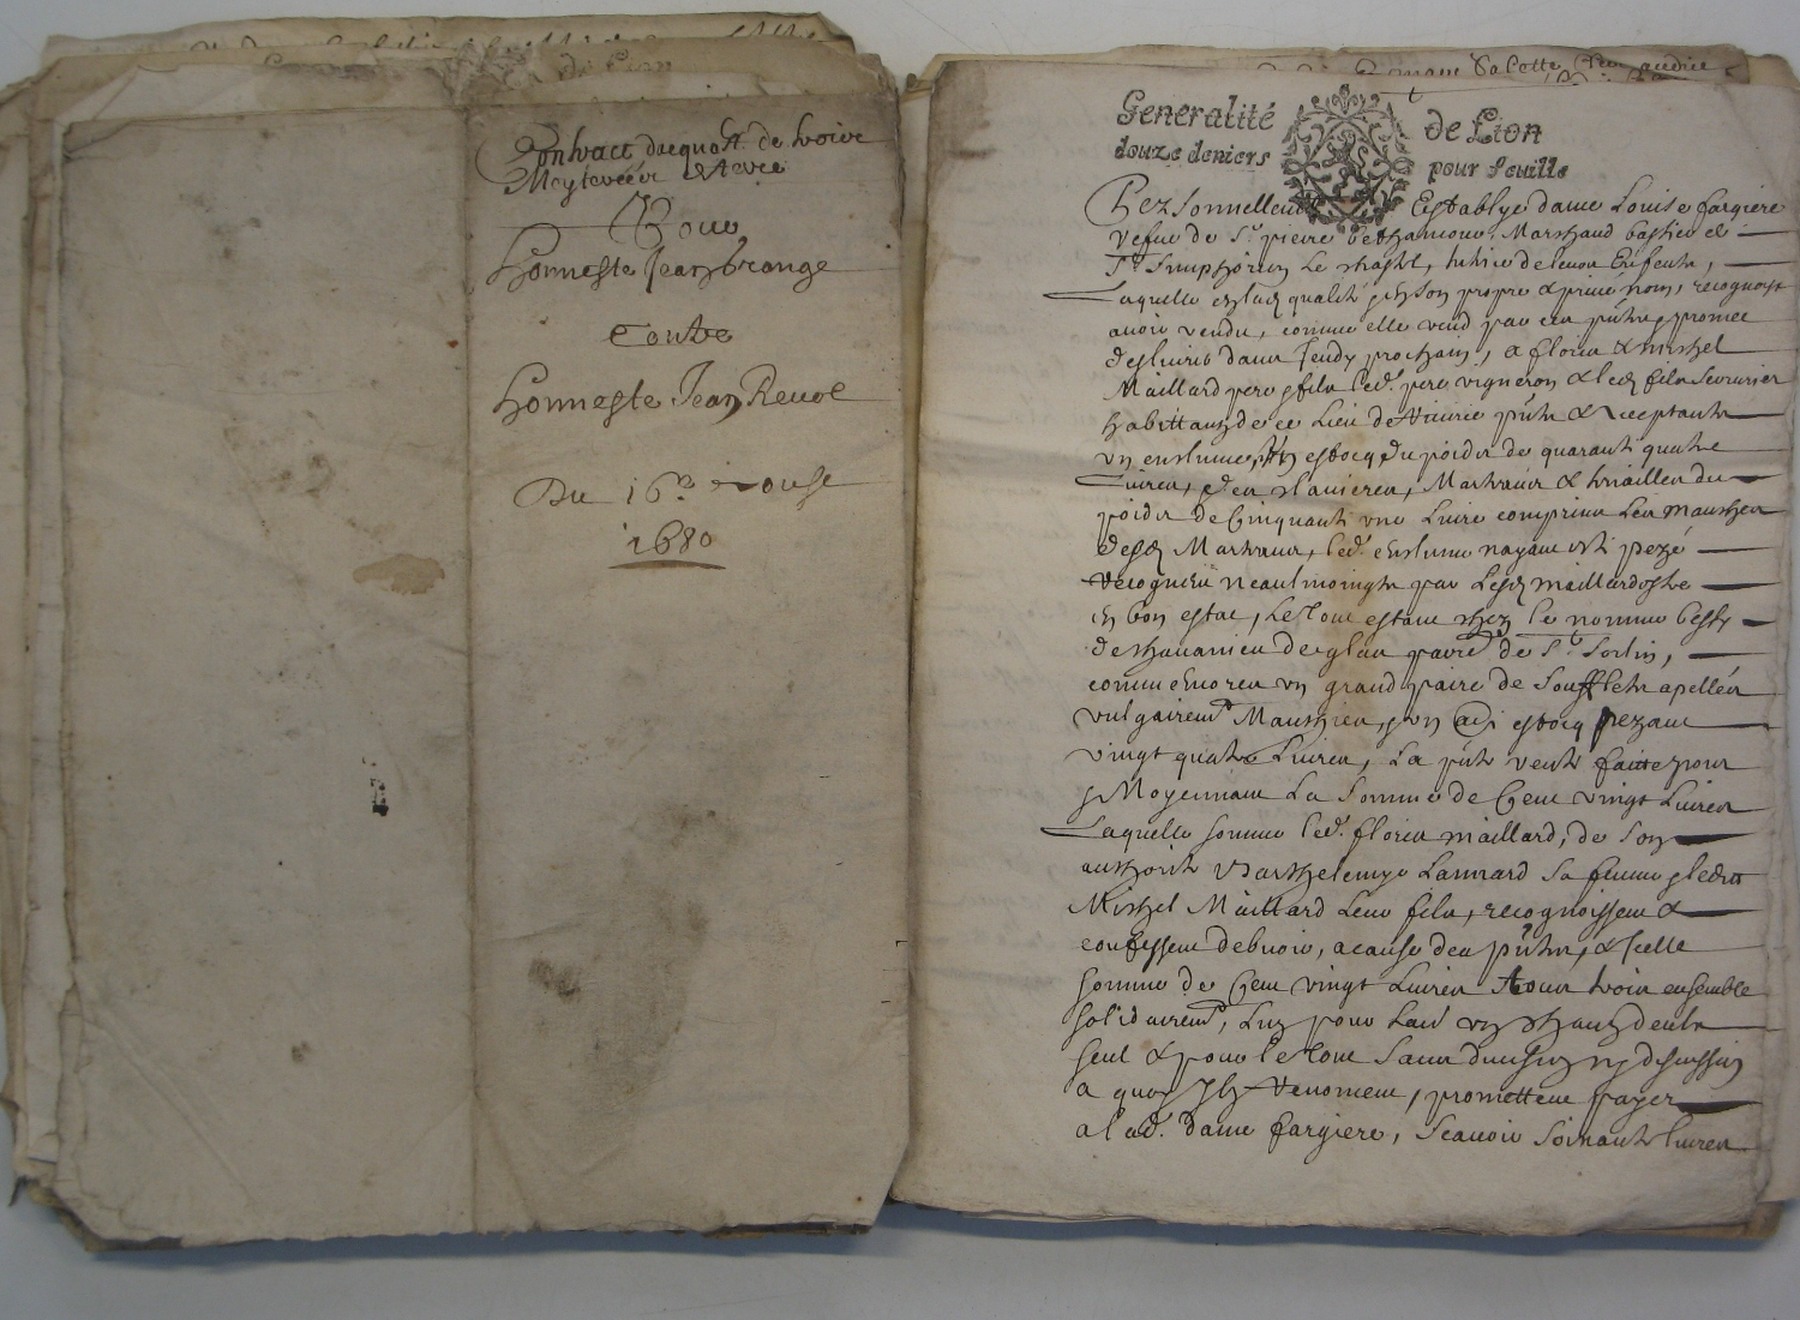 Contract dacquo.st de troire
Meyterées terre
Pour
Honneste Jean Grange
Contre
Honneste Jean Revol
Du 16e aoust
1680
Generalité de Lion
douze deniers pour feuille
Personnellemt Establye dame Louise fargiere
vefve de Sr pierre Marchand
St Simphorien Le chastel, tutrice de leurs Enfents,
Laquelle en lad qualité & en son propre & privé nom, recognoist
avoir vendu, comme elle vend par ces pntes & promet
deslivrer dans Jeudy prochain, a floris & michel
Maillard pere & fils led. pere vigneron & led fils serrurier
habittans de ce Lieu de pnts & acceptants
un enclume, un estocq du poidz de quarante quatre
Livres, des clavieres, Marteaux & du
poidz de Cinquante une Livre comprins Les manches
desd Marteaux, led. enclume nayant esté pezé
recogneu neaulmoingts par Lesd maillard estre
en bon estat, Le tout estant chez le nomme
de parre de St Sorlin,
comm' encores un grand paire de Soufflets apellés
vulgairemt Manchien, & un estocq pezant
vingt quatre Livres, La pnte vente faitte pour
& Moyennant La Somme de Cent vingt Livres
Laquelle somme led. floris maillard, de son
authorité Barthelemye Lannard Sa femme & ledit
Michel Maillard Leur fils, recognoissent &
confessent debvoir, a cause des pntes, & Icelle
somme de Cent vingt Livres tous trois ensemble
solidairemt, Lun pour Laut un chaun deulx
seul & pour le tout Sans division ny discussion
a quoy Ilz renoncent, promettent payer
a lad. dame fargiere, Scavoir Soixante livres